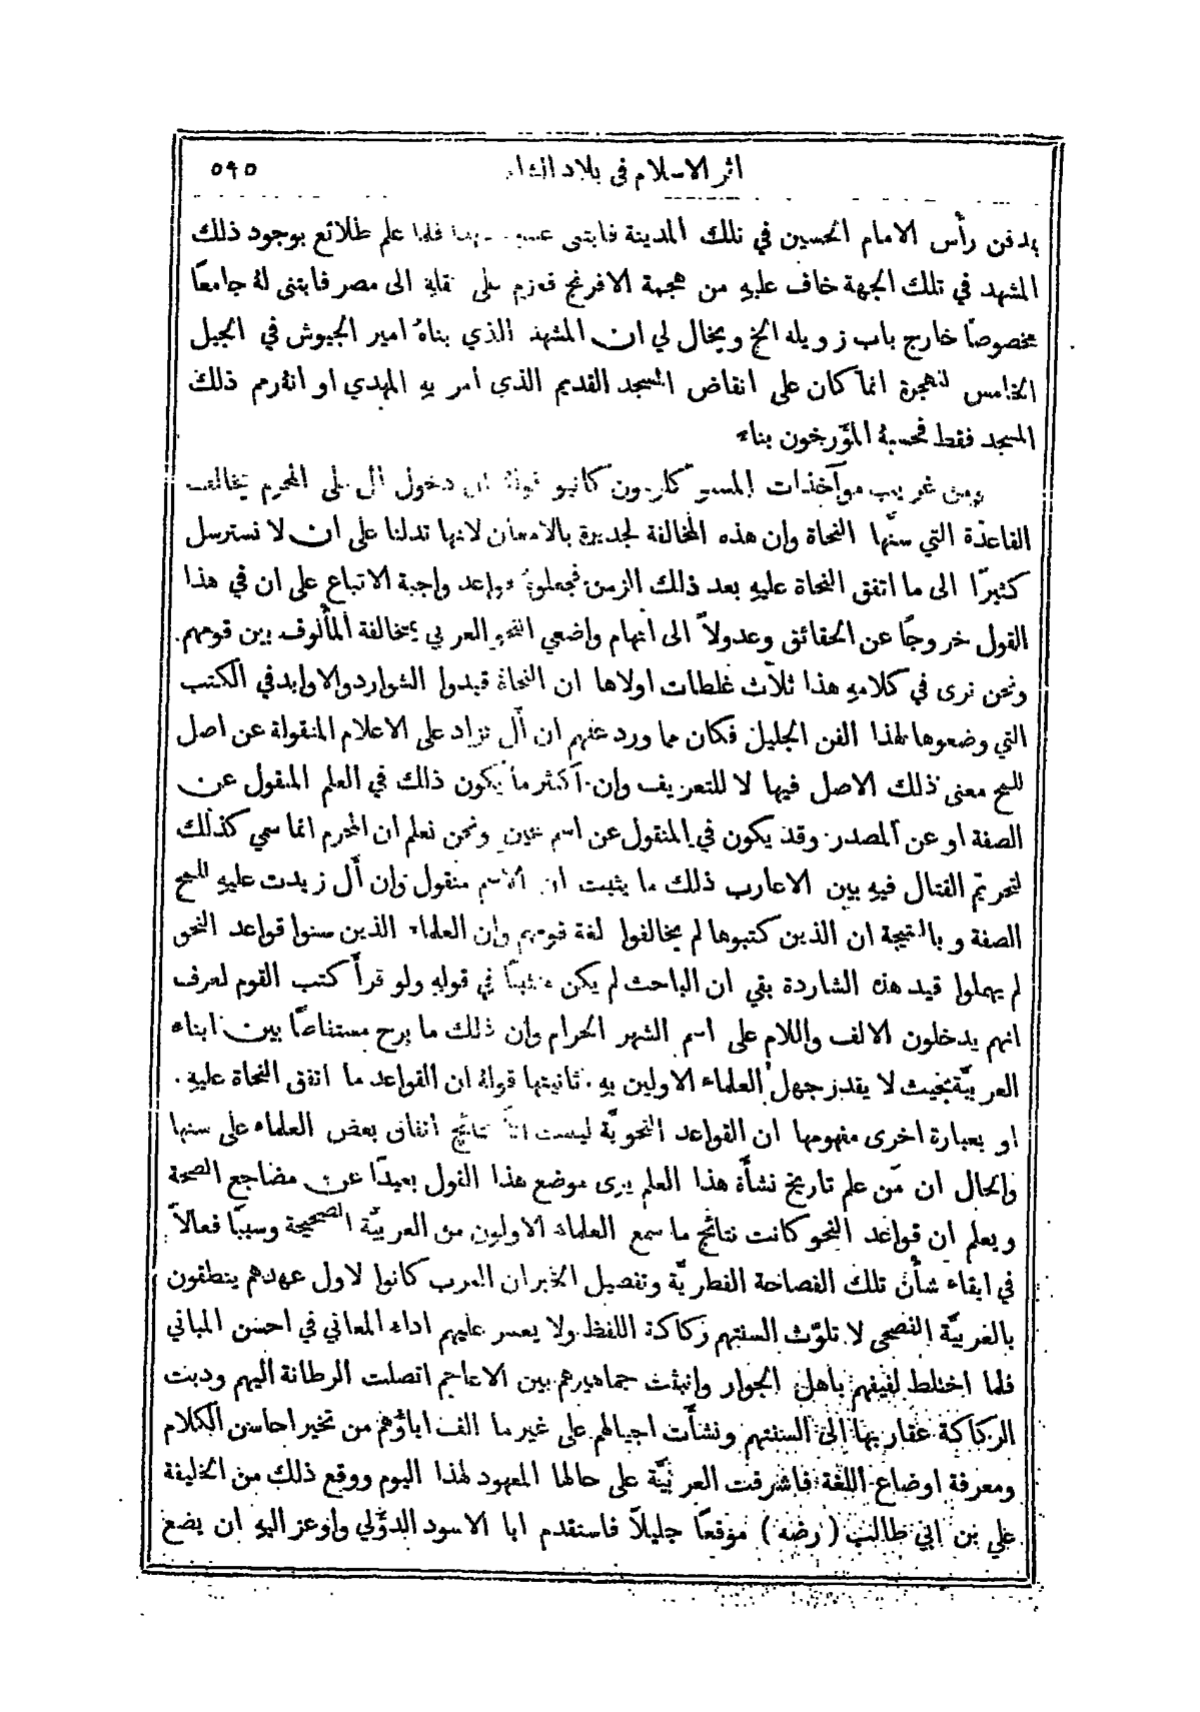 اثر الاسلام في بلاد
٥٩٥
بدفن رأس الامام الحسين في تلك المدينة فابتنى فلما علم طلائع بوجود ذلك
المشهد في تلك الجهة خاف عليهِ من هجمة الافرنج فعزم على نقلهِ الى مصر فابتنى لهُ جامعًا
مخصوصًا خارج باب زويله الخ ويخال لي ان المشهد الذي بناهُ امير الجيوش في الجيل
الخامس للهجرة انما كان على انقاض المسجد القديم الذي امر بهِ المهدي او انهُ رم ذلك
المسجد فقط فحسبهُ المؤرخون بناء
ومن غريب مؤآخذات المسيو كانيو قولهُ ان دخول ال على المحرم يخالف
القاعدة التي سنَّها النحاة وإن هذه المخالفة لجديرة بالامعان لانها تدلنا على ان لا نسترسل
كثيرًا الى ما اتفق النحاة عليهِ بعد ذلك الزمن فجعلوهُ قواعد واجبة الاتباع على ان في هذا
القول خروجًا عن الحقائق وعدولاً الى اتهام واضعي النحو العربي بمخالفة المألوف بين قومهم .
ونحن نرى في كلامهِ هذا ثلاث غلطات اولاها ان النحاة قيدوا الشوارد والاوابد في الكتب
التي وضعوها لهذا الفن الجليل فكان مما ورد عنهم ان أَل تزاد على الاعلام المنقولة عن اصل
للمح معنى ذلك الاصل فيها لا للتعريف وإن أكثر ما يكون ذلك في العلم المنقول عن
الصفة او عن المصدر وقد يكون في المنقول عن اسم عين ونحن نعلم ان المحرم انما سمي كذلك
لتحريم القتال فيهِ بين الاعارب ذلك ما يثبت ان الاسم منقول وإن أَل زيدت عليهِ للمح
الصفة وبالنتيجة ان الذين كتبوها لم يخالفوا لغة قومهم وإن العلماء الذين سنوا قواعد النحو
لم يهملوا قيد هذه الشاردة بقي ان الباحث لم يكن مثبتًا في قولهِ ولو قرأَ كتب القوم لعرف
انهم يدخلون الالف واللام على اسم الشهر الحرام وإن ذلك ما برح مستفاضًا بين ابناء
العربيَّة بحيث لا يقدر جهل العلماء الاولين بهِ . ثانيتها قولهُ ان القواعد ما اتفق النحاة عليهِ .
او بعبارة اخرى مفهومها ان القواعد النحويَّة ليست الاَّ نتائج اتفاق بعض العلماء على سنها
والحال ان مَن علم تاريخ نشأَة هذا العلم يرى موضع هذا القول بعيدًا عن مضاجع الصحة
ويعلم ان قواعد النحو كانت نتائج ما سمع العلماء الاولون من العربيَّة الصحيحة وسببًا فعالاً
في ابقاء شأن تلك الفصاحة الفطريَّة وتفصيل الخبر ان العرب كانوا لاول عهدهم ينطقون
بالعربيَّة الفصحى لا تلوّث السنتهم ركاكة اللفظ ولا يعسر عليهم اداء المعاني في احسن المباني
فلما اختلط لفيفهم باهل الجوار وانبثت جماهيرهم بين الاعاجم اتصلت الرطانة اليهم ودبت
الركاكة عقاربها الى السنتهم ونشأَت اجيالهم على غير ما الف اباؤُهم من تخير احاسن الكلام
ومعرفة اوضاع اللغة فاشرفت العربيَّة على حالها المعهود لهذا اليوم ووقع ذلك من الخليفة
علي بن ابي طالب ( رضه ) موقعًا جليلاً فاستقدم ابا الاسود الدؤَلي وأوعز اليهِ ان يضع